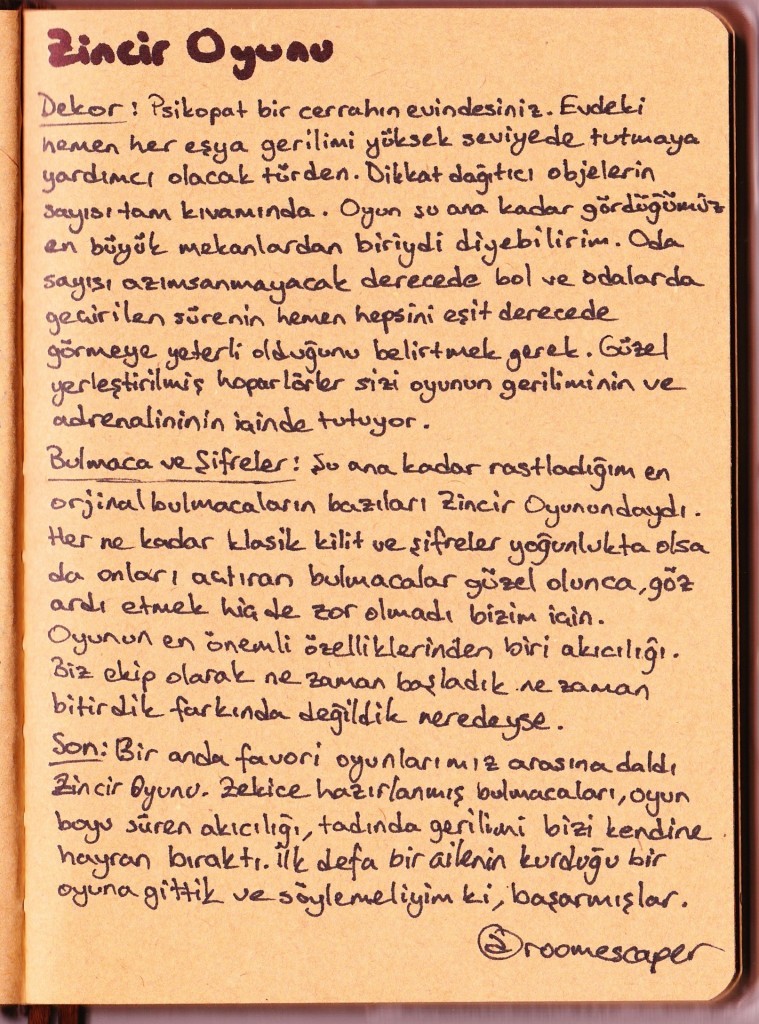 Zincir Oyunu
Dekor : Psikopat bir cerrahın evindesiniz. Evdeki
hemen her eşya gerilimi yüksek seviyede tutmaya
yardımcı olacak türden. Dikkat dağıtıcı objelerin
sayısı tam kıvamında. Oyun şu ana kadar gördüğümüz
en büyük mekanlardan biriydi diyebilirim. Oda
sayısı azımsanmayacak derecede bol ve odalarda
geçirilen sürenin hemen hepsini eşit derecede
görmeye yeterli olduğunu belirtmek gerek. Güzel
yerleştirilmiş hoparlörler sizi oyunun geriliminin ve
adrenalininin içinde tutuyor.
Bulmaca ve Şifreler : Şu ana kadar rastladığım en
orjinal bulmacaların bazıları Zincir Oyunundaydı.
Her ne kadar klasik kilit ve şifreler yoğunlukta olsa
da onları açtıran bulmacalar güzel olunca, göz
ardı etmek hiç de zor olmadı bizim için.
Oyunun en önemli özelliklerinden biri akıcılığı.
Biz ekip olarak ne zaman başladık ne zaman
bitirdik farkında değildik neredeyse.
Son: Bir anda favori oyunlarımız arasına daldı
Zincir Oyunu. Zekice hazırlanmış bulmacaları, oyun
boyu süren akıcılığı, tadında gerilimi bizi kendine
hayran bıraktı. İlk defa bir ailenin kurduğu bir
oyuna gittik ve söylemeliyim ki, başarmışlar.
@roomescaper